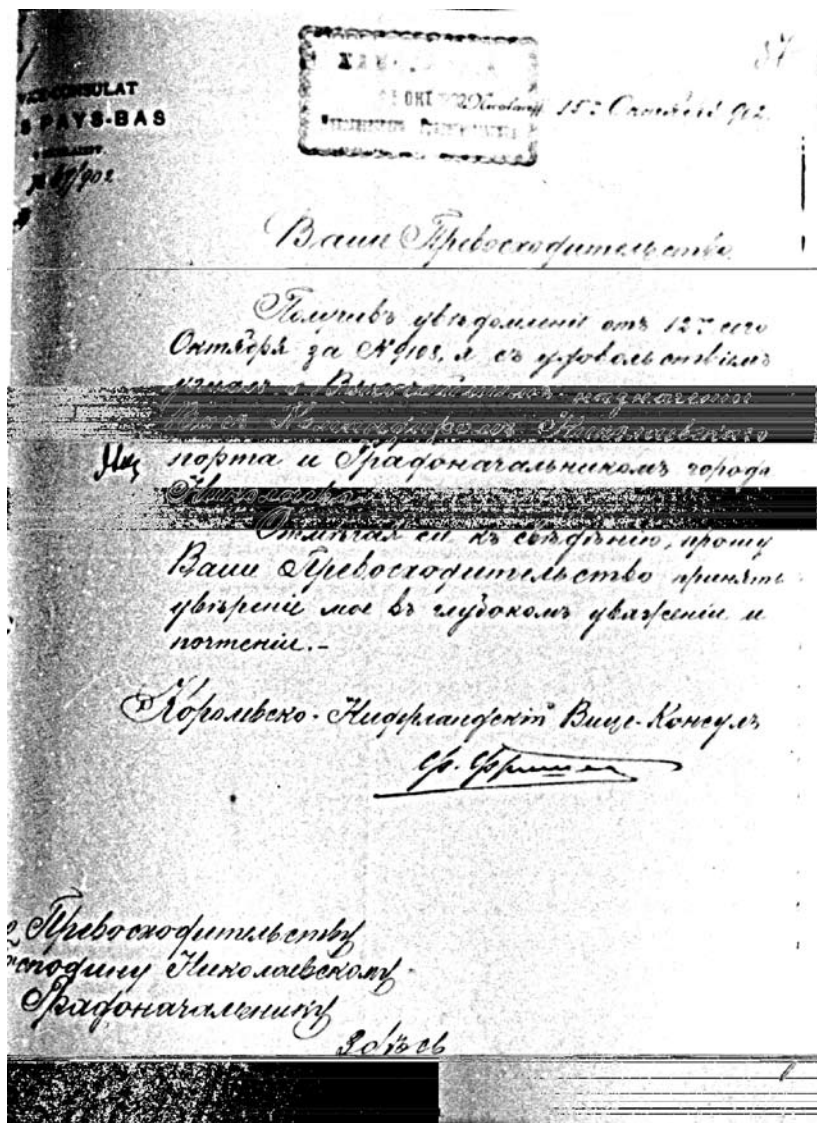 VICE-CONSULAT
PAYS-BAS
/902
ОКТ
Nicolaieff 15го Октября 902.
Ваше Превосходительство
Получивъ увѣдомленіе отъ 12го сего
Октября за № 9108, я съ удовольствіемъ
узналъ о Высочайшемъ назначеніи
Васъ Командиромъ Николаевскаго
порта и Градоначальникомъ города
Николаева.
Отмѣчая сіе къ свѣдѣнію, прошу
Ваше Превосходительство принять
увѣреніе мое въ глубокомъ уваженіи и
почтеніи.-
Королевско-Нидерландскій Вице-Консулъ
Превосходительству
Господину Николаевскому
Градоначальнику
Здѣсь